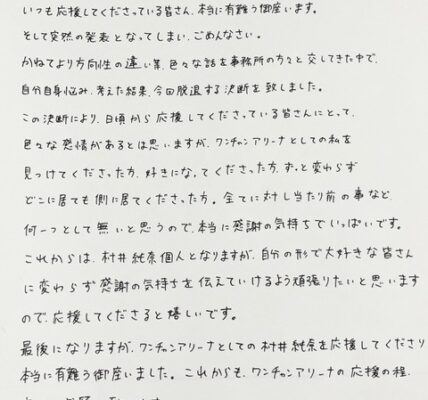 いつも応援してくださっている皆さん、本当に有難う御座います。
そして突然の発表となってしまい、ごめんなさい。
かねてより方向性の違い等、色々な話を事務所の方々と交してきた中で、
自分自身悩み、考えた結果、今回脱退する決断を致しました。
この決断により、日頃から応援してくださっている皆さんにとって、
色々な感情があるとは思いますが、ワンチャンアリーナとしての私を
見つけてくださった方、好きになってくださった方、ずっと変わらず
どこに居ても側に居てくださった方。全てに対し当たり前の事など
何一つとして無いと思うので、本当に感謝の気持ちでいっぱいです。
これからは、村井純奈個人となりますが、自分の形で大好きな皆さん
に変わらず感謝の気持ちを伝えていけるよう頑張りたいと思います
ので、応援してくださると嬉しいです。
最後になりますが、ワンチャンアリーナとしての村井純奈を応援してくださり
本当に有難う御座いました。これからも、ワンチャンアリーナの応援の程、